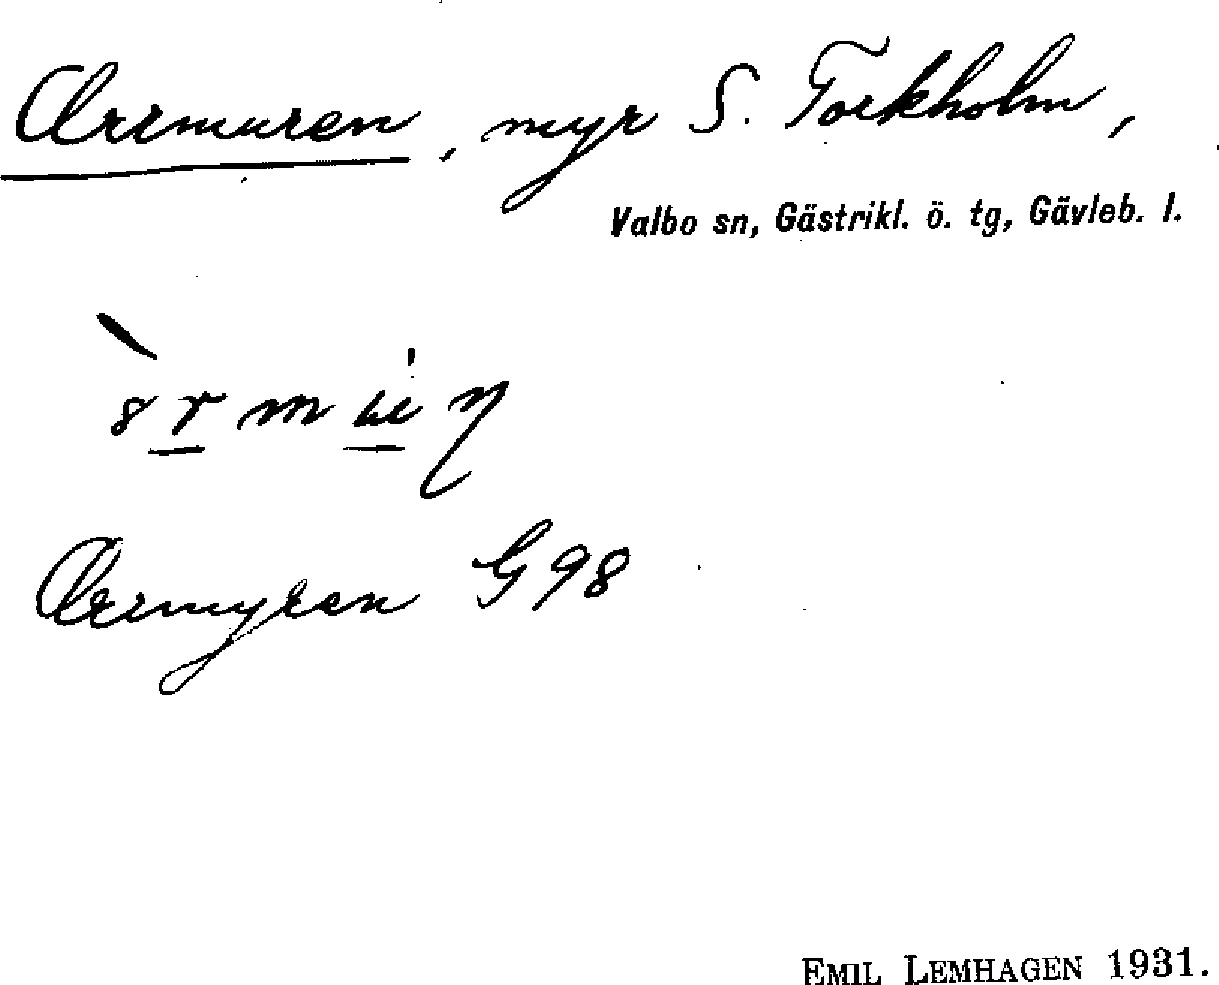 Arrmuren, myr S. Torkholm,
Valbo sn, Gästrikl. ö. tg, Gävleb. l.
Arrmyren G 98
EMIL LEMHAGEN 1931.